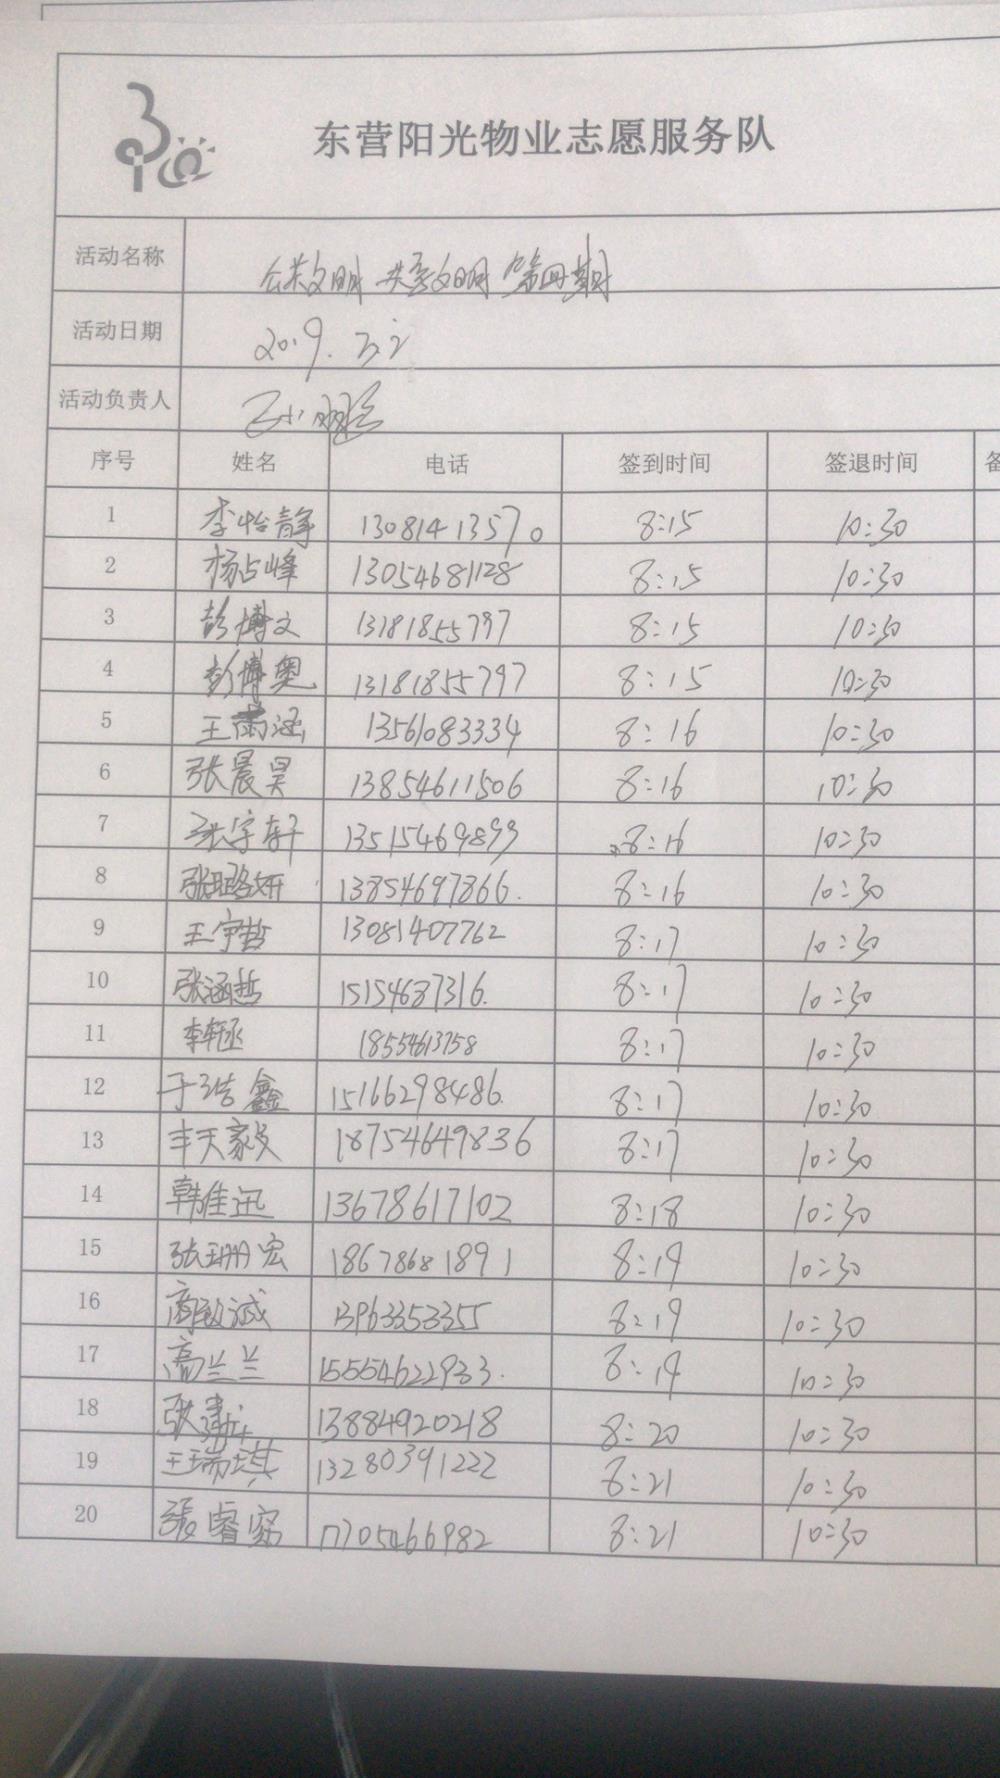 东营阳光物业志愿服务队
活动名称 公共文明 共享文明 第四期
活动日期 2019.
活动负责人
序号 姓名 电话 签到时间 签退时间 备
1 李怡静 13081413570 8:15 10:30
2 杨占峰 13054681128 8:15 10:30
3 彭博文 13181855797 8:15 10:30
4 彭博奥 13181855797 8:15 10:30
5 王雨涵 13561083334 8:16 10:30
6 张晨昊 13854611506 8:16 10:30
7 张宇轩 13515469899 8:16 10:30
8 张珈妍 13854697866. 8:16 10:30
9 王宇哲 13081407762 8:17 10:30
10 张涵哲 15154687316. 8:17 10:30
11 李轩丞 18554613758 8:17 10:30
12 于浩鑫 15166298486. 8:17 10:30
13 丰天毅 18754649836 8:17 10:30
14 韩佳迅 13678617102 8:18 10:30
15 张珊宏 18678681891 8:19 10:30
16 商敬诚 13963353355 8:19 10:30
17 高兰兰 15554622933. 8:19 10:30
18 张 13884920218 8:20 10:30
19 王瑞琪 13280391222 8:21 10:30
20 張睿 17705466982 8:21 10:30